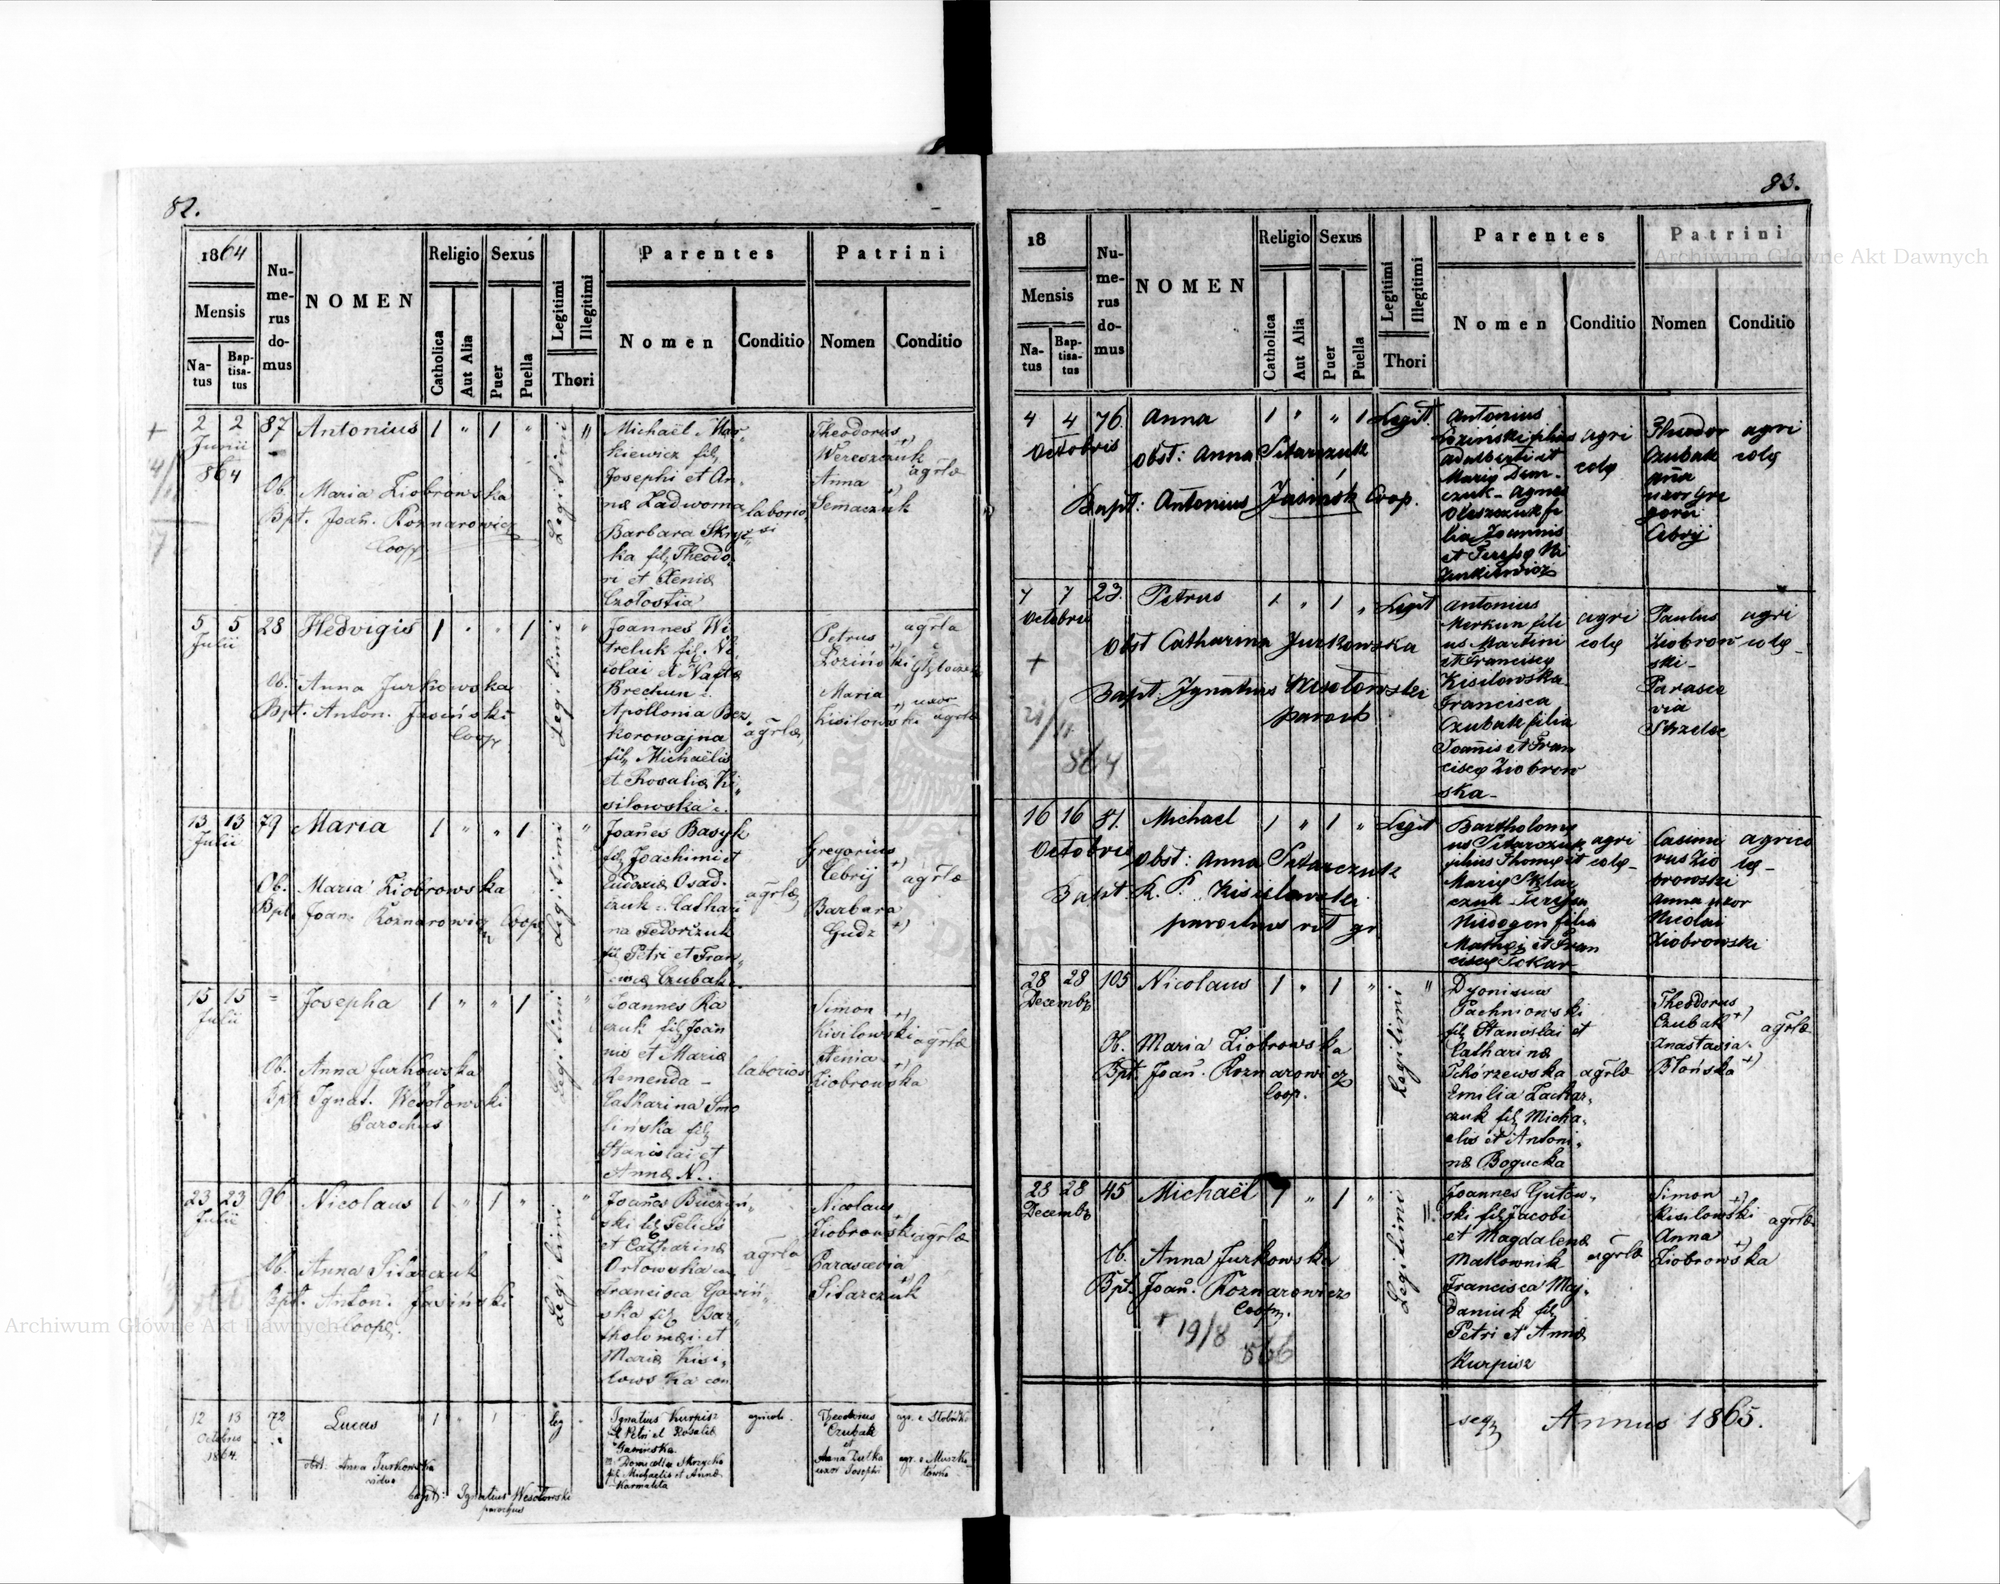 82.
1864
Mensis
Na-
tus
Bap-
tisa-
tus
Nu-
me-
rus
do-
mus
NOMEN
Religio
Catholica
Aut Alia
Sexus
Puer
Puella
Legitimi
Illegitimi
Thori
Parentes
Nomen
Conditio
Patrini
Nomen
Conditio
2 2 87 Antonius 1 " 1 "
Junii
864
Ob. Maria Ziobrowska
Bpt. Joan̄. Koznarowicz
Coop
Legitimi
Michaël Mar-
kiewicz fil
Josephi et An-
næ Zadworna
Barbara Skrzyc
ka fil Theodo-
ri et Xeniæ
laborio
si
Theodorus
Wereszczuk
Anna
Semaczuk
agrlæ
5 5 28 Hedvigis 1 " " 1
Julii
Ob. Anna Jurkowska
Bpt. Anton. Jasiński
Coop
Legitimi
Joannes Wi
treluk fil. Ni
colai et Nastæ
Brechun
Apollonia Bez
korowajna
fil Michaëlis
et Rosaliæ Ki
silowska
agrlæ
Petrus
Loziński
Maria
Kisilowski
agrla
uxor
agrlæ
13 13 79 Maria 1 " " 1
Julii
Ob. Maria Ziobrowska
Bpt. Joan. Koznarowicz Coop
Legitimi
Joañes Basyk
fil Joachimi et
Eudoxiæ Osad
czuk Cathari
na Fedorczuk
fil Petri et Fran
Czubak
agrlæ
Gregorius
Cebrij
Barbara
Gudz
agrlæ
15 15 = Josepha 1 " " 1
Julii
Ob. Anna Jurkowska
Bpt Ignat. Wesołowski
Parochus
Legitimi
Joannes Ka
czuk fil Joan
nis et Mariæ
Remenda -
Catharina Smo
lińska fil
Stanislai et
Annæ N.
laborios
Simon
Kisilowski
Xenia
Ziobrowska
agrlæ
23 23 96 Nicolaus 1 " 1 "
Julii
Ob. Anna Sitarczuk
Bpt. Anton. Jasiński
Coop.
Legitimi
Joañes Buczyń
ski fil Felicis
et Catharinæ
Orłowska
Francisca Gawiń
ska fil Bar
tholomæi et
Mariæ Kisi
lowska
agrla
Nicolaus
Ziobrowski
Parascevia
Sitarczuk
agrlæ
12 13 72 Lucas 1 " 1
Octobris
1864.
obst: Anna Jurkowska
vidua
bapt: Ignatius Wesołowski
parochus
leg
Ignatius Kurpisz
fil Petri et Rosaliæ
Gawinska
Skrzycka
fil Michaelis et Annæ
Karmalita
agricola.
Theodorus
Czubak
et
Anna Dutka
uxor Josephi
agr. e Stobódka
agr. e Muszka
tówka
83.
18
Mensis
Na-
tus
Bap-
tisa-
tus
Nu-
me-
rus
do-
mus
NOMEN
Religio
Catholica
Aut Alia
Sexus
Puer
Puella
Legitimi
Illegitimi
Thori
Parentes
Nomen
Conditio
Patrini
Nomen
Conditio
4 4 76. Anna 1 " " 1 Legit.
Octobris
obst: Anna Sitarczuk
Bapt: Antonius Jasińsk Coop.
Antonius
Lozinski filius
Adalberti et
Mariæ Dem-
czuk - Agnes
Oleszczuk fi
lia Joannis
et
agri
colæ
Theodor
Czubak
uxor Gre
gorii
Cebrij
agri
colæ
7 7 23. Petrus 1 " 1 " Legit
Octobris
Obst Catharina Jurkowska
Bapt. Ignatius Wesołowski
paroch
+
21/11
864
Antonius
Merkun fili
us Martini
et Franciscæ
Kisilowska
Francisca
Czubak filia
Joañis et Fran
ciscæ Ziobrow
ska -
agri
colæ
Paulus
Ziobrow
ski -
Parasce
via
Strzelec
agri
colæ
16 16 81. Michael 1 " 1 " Legit
Octobris
obst: Anna Sitarczuk
Bapt R. P. Kisielewski
parochus rit gr
Bartholomę
us Sitarczuk
filius Thomę et
Mariæ
czuk
Niedogon filia
Mathęi et Fran
ciscę Tokar
agri
colę
Casimi
rus Zio
browski
Anna uxor
Nicolai
Ziobrowski
agrico
lę
28 28 105 Nicolaus 1 " 1 " "
Decemb
Ob. Maria Ziobrowska
Bpt. Joan̄. Koznarowicz
Coop.
Legitimi
Dyonisius
Pachniowski
fil Stanislai et
Catharinæ
Tchórzewska
Emilia Zachar
czuk fil Micha
elis et Antoni
næ Bogucka
agrlæ
Theodorus
Czubak
Anastasia
Błońska
agrlæ
28 28 45 Michaël 1 " 1 "
Decemb
Ob. Anna Jurkowska
Bpt. Joan̄. Koznarowicz
Coop.
+ 19/8
866
Legitimi
Joannes Gutow
ski fil Jacobi
et Magdalenæ
Małkownik
Francisca Maj
daniuk fil
Petri et Annæ
Kurpisz
agrlæ
Simon
Kisilowski
Anna
Ziobrowska
agrlæ
seq Annus 1865.
Archiwum Główne Akt Dawnych
Archiwum Główne Akt Dawnych